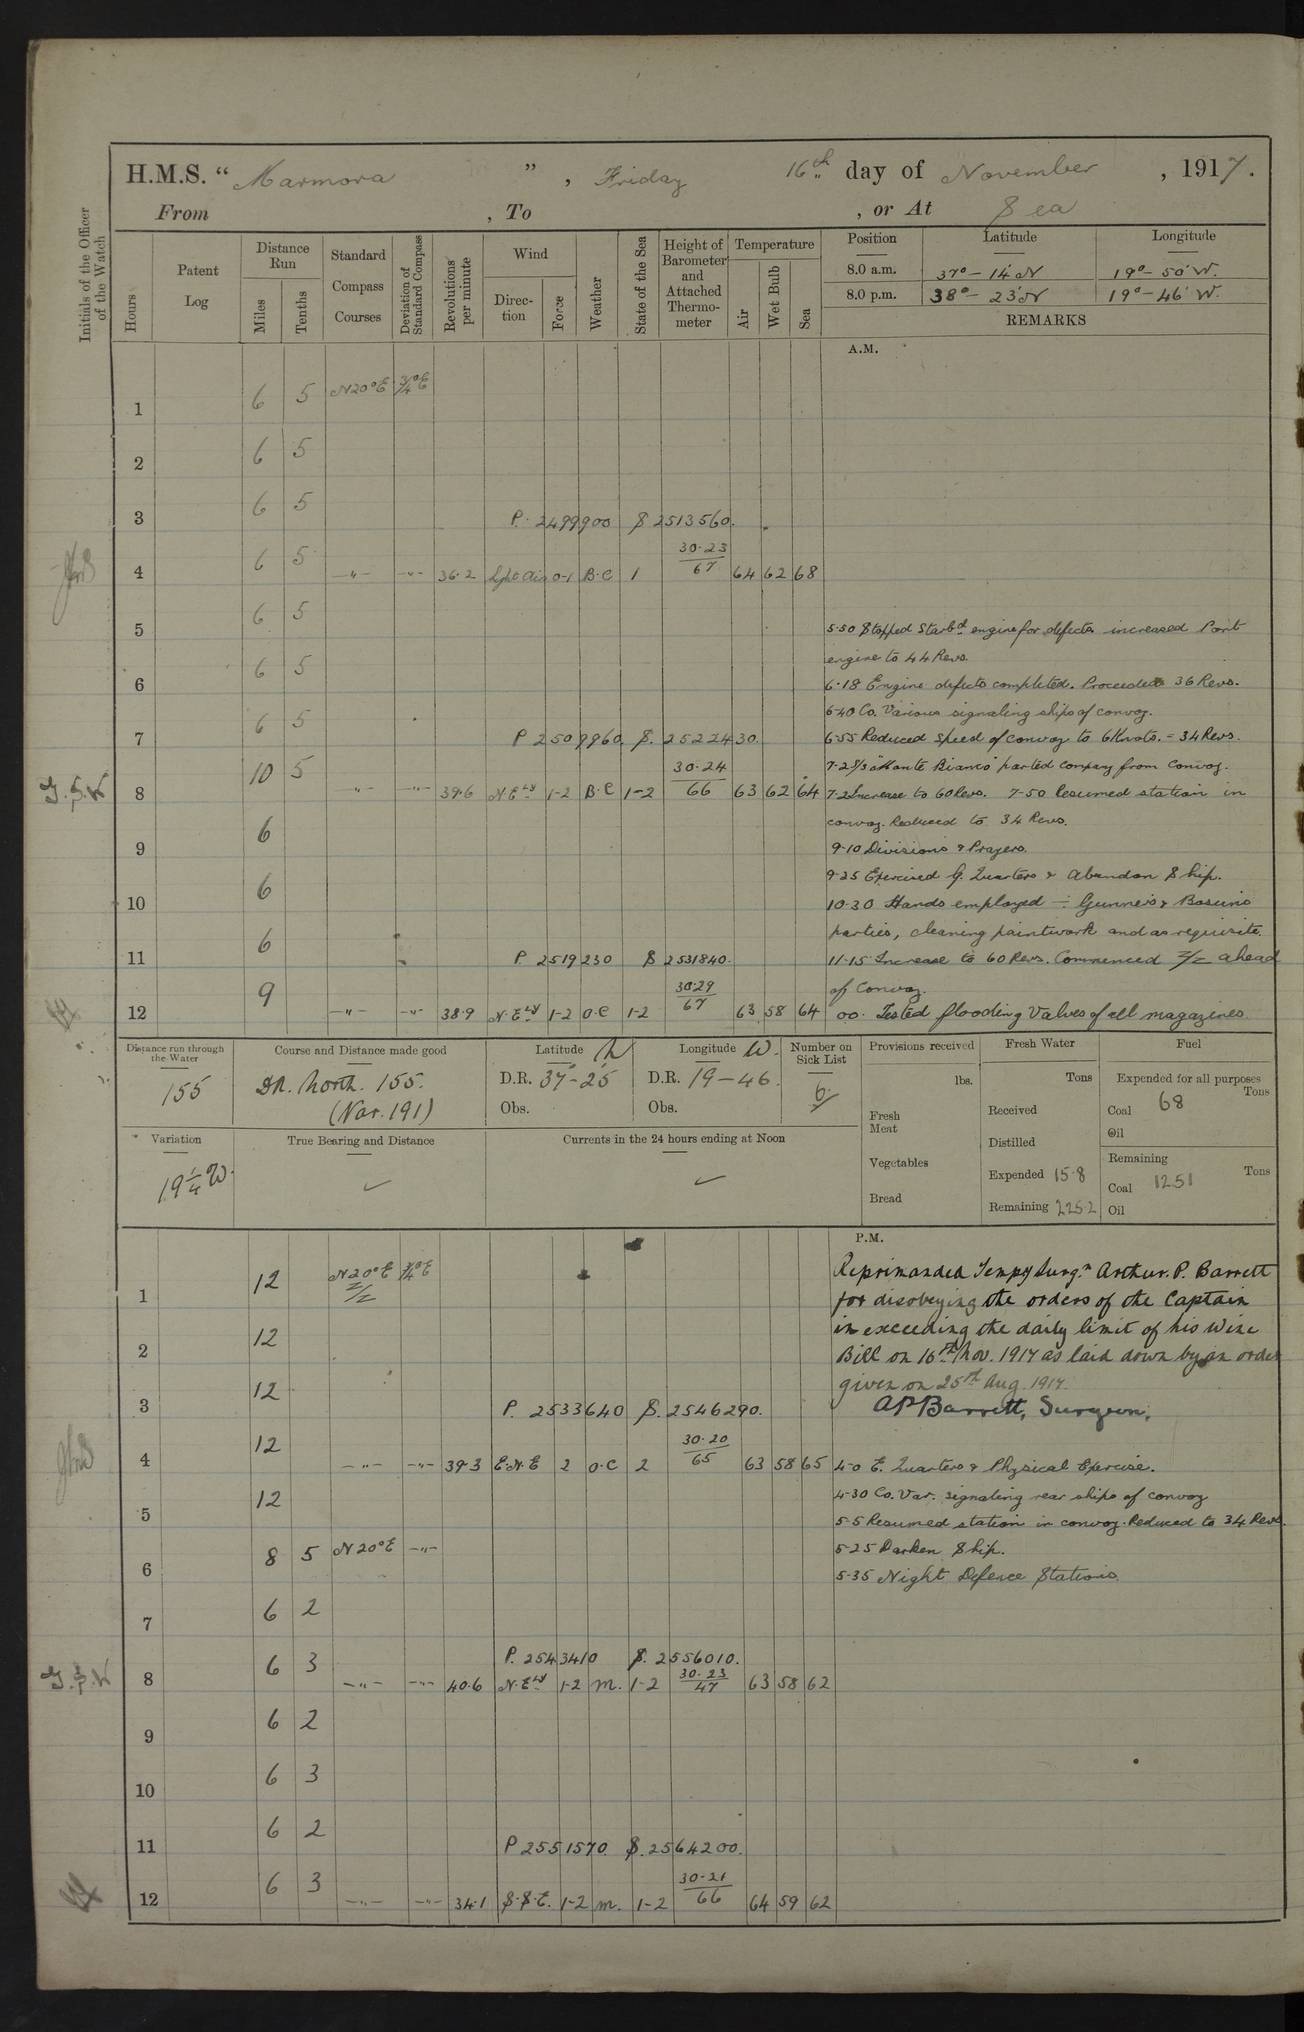 H.M.S. “ Marmora ” , Friday 16th day of November , 1917.
From , To , or At Sea
Initials of the Officer of the Watch
Hours
Patent Log
Distance Run
Miles
Tenths
Standard Compass Courses
Deviation of Standard Compass
Revolutions per minute
Wind
Direc-tion
Force
Weather
State of the Sea
Height of Barometer and Attached Thermo-meter
Temperature
Air
Wet Bulb
Sea
Position Latitude Longitude
8.0 a.m. 37°-14'N 19°-50'W.
8.0 p.m. 38°-23'N 19°-46'W.
REMARKS
A.M.
1 6 5 N20°E 3/4°E
2 6 5
3 6 5 P. 2499900 S 2513560.
4 6 5 —"— —"— 36.2 Lght Airs 0-1 B.C 1 30.23/67 64 62 68
5 6 5
5.50 Stopped Starbd engine for defects increased Port
engine to 44 Revs.
6 6 5
6.18 Engine defects completed. Proceeded 36 Revs.
6.40 Co. Various signaling ships of convoy.
7 6 5 P 2509960. S. 2522430.
6.55 Reduced speed of convoy to 6 Knots. = 34 Revs.
7.2 S/S "Monte Bianco" parted company from Convoy.
J.S.W 8 10 5 —"— —"— 39.6 N.Ely 1-2 B.C 1-2 30.24/66 63 62 64
7.2 Increase to 60 Revs. 7-50 Resumed station in
convoy. Reduced to 34 Revs.
9 6
9.10 Divisions & Prayers.
9.25 Exercised G. Quarters & Abandon Ship.
10 6
10.30 Hands employed — Gunner's & Bosun's
parties, cleaning paintwork and as requisite.
11 6 P 2519230 S 2531840.
11.15 Increase to 60 Revs. Commenced Z/Z ahead
of Convoy.
12 9 —"— —"— 38.9 N.Ely 1-2 O.C 1-2 30.29/67 63 58 64
00. Tested flooding Valves of all magazines.
Distance run through the Water
155
Course and Distance made good
DR. North. 155.
(Nav. 191)
Latitude N
D.R. 37°-25'
Obs.
Longitude W.
D.R. 19-46.
Obs.
Number on Sick List
6.
Provisions received
lbs.
Fresh Meat
Vegetables
Bread
Fresh Water
Tons
Received
Distilled
Expended 15.8
Remaining 225.2
Fuel
Expended for all purposes
Tons
Coal 68
Oil
Remaining
Tons
Coal 1251
Oil
Variation
19 1/4 W.
True Bearing and Distance
Currents in the 24 hours ending at Noon
P.M.
1 12 N20°E Z/Z 3/4°E
Reprimanded Tempy Surgn Arthur. P. Barrett
for disobeying the orders of the Captain
in exceeding the daily limit of his Wine
2 12
Bill on 16th Nov. 1917 as laid down by an order
given on 25th Aug. 1917.
3 12 P. 2533640 S. 2546290.
AP Barrett, Surgeon.
4 12 —"— —"— 39.3 E.N.E 2 O.C 2 30.20/65 63 58 65
4-0 E. Quarters & Physical Exercise.
4-30 Co. Var. signaling rear ships of convoy
5 12
5-5 Resumed station in convoy. Reduced to 34 Revs.
5-25 Darken Ship.
6 8 5 N20°E —"—
5-35 Night Defence Stations.
7 6 2
P. 2543410 S. 2556010.
J.S.W 8 6 3 —"— —"— 40.6 N.Ely 1-2 m. 1-2 30.23/47 63 58 62
9 6 2
10 6 3
11 6 2 P 2551570. S. 2564200.
12 6 3 —"— —"— 34.1 S.S.E. 1-2 m. 1-2 30.21/66 64 59 62